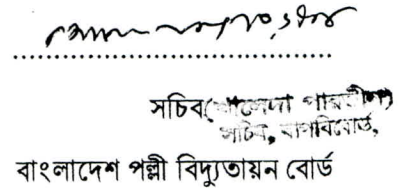 সচিব(খালেদা পারভীন)
সচিব, বাপবিবোর্ড,
বাংলাদেশ পল্লী বিদ্যুতায়ন বোর্ড